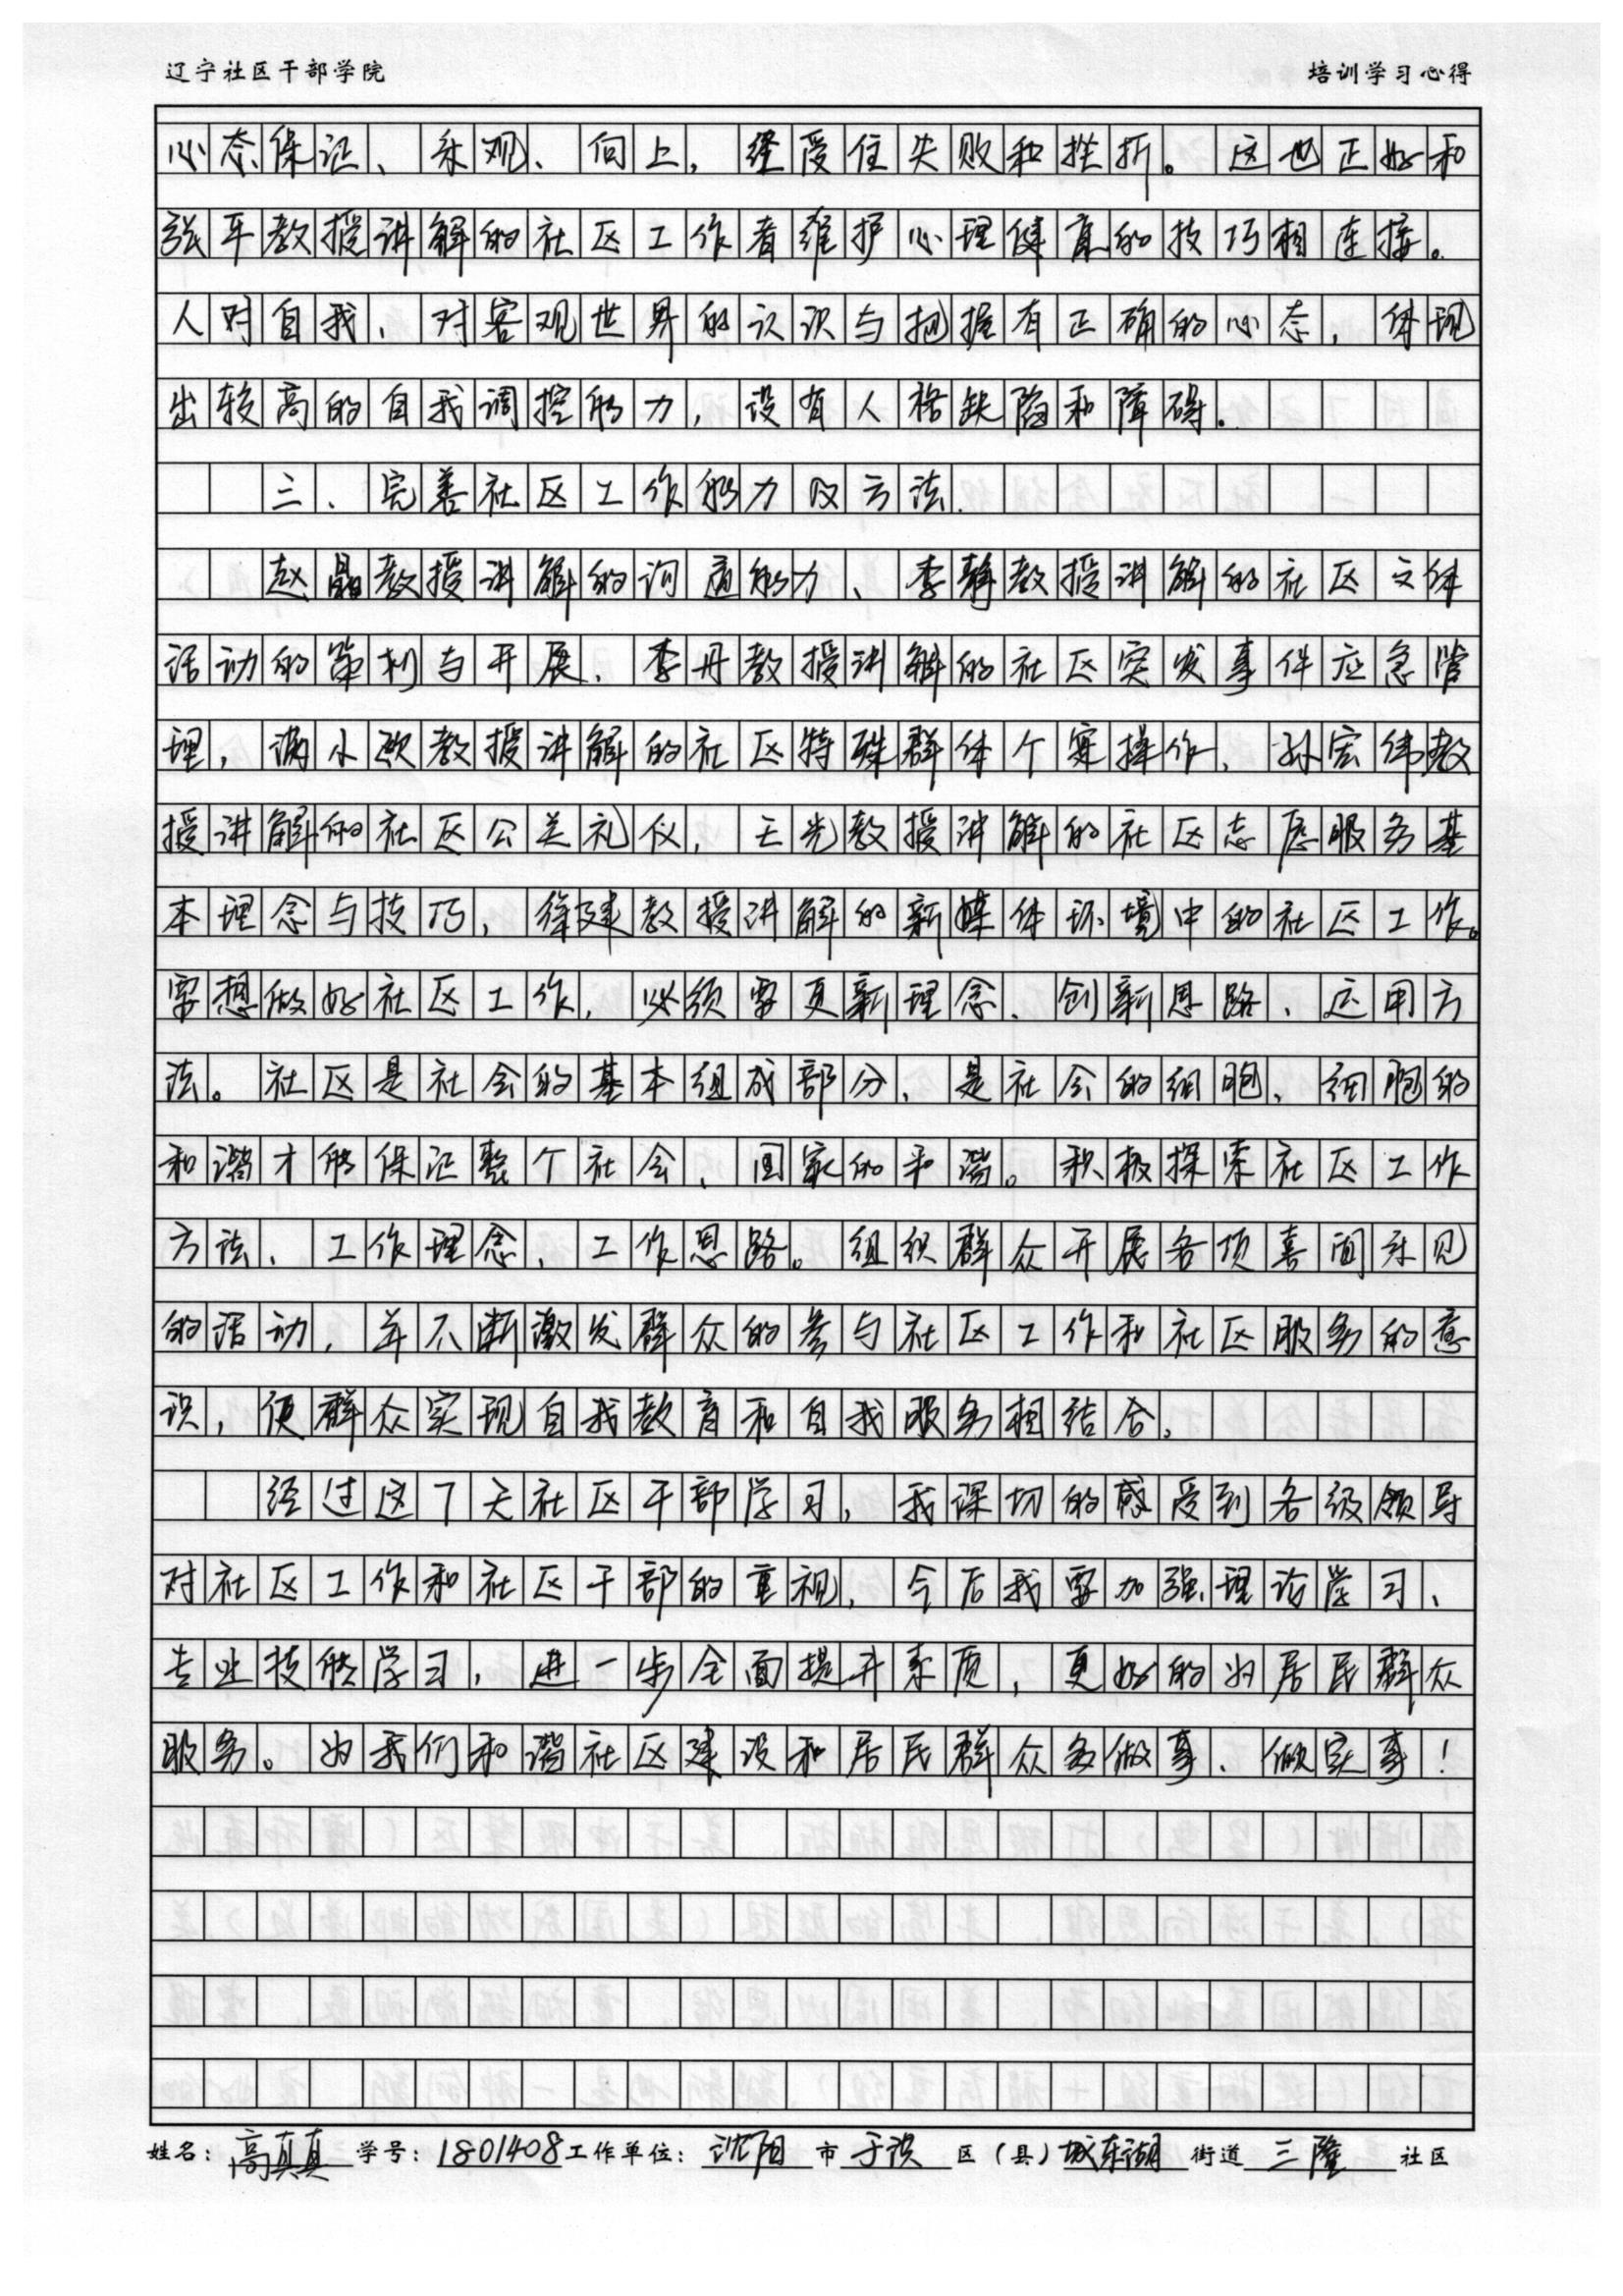 辽宁社区干部学院 培训学习心得
心态保证、乐观、向上，经受住失败和挫折。这也正好和
张平教授讲解的社区工作者维护心理健康的技巧相连接。
人对自我、对客观世界的认识与把握有正确的心态，体现
出较高的自我调控能力，没有人格缺陷和障碍。
三、完善社区工作能力及方法
赵晶教授讲解的沟通能力、李静教授讲解的社区文体
活动的策划与开展、李丹教授讲解的社区突发事件应急管
理，满小欧教授讲解的社区特殊群体个案操作、孙宏伟教
授讲解的社区公关礼仪，王光教授讲解的社区志愿服务基
本理念与技巧，徐建教授讲解的新媒体环境中的社区工作。
要想做好社区工作，必须要更新理念、创新思路、运用方
法。社区是社会的基本组成部分、是社会的细胞，细胞的
和谐才能保证整个社会、国家的和谐。积极探索社区工作
方法、工作理念、工作思路。组织群众开展各项喜闻乐见
的活动，并不断激发群众的参与社区工作和社区服务的意
识，使群众实现自我教育和自我服务相结合。
经过这7天社区干部学习，我深切的感受到各级领导
对社区工作和社区干部的重视，今后我要加强理论学习、
专业技能学习，进一步全面提升素质，更好的为居民群众
服务。为我们和谐社区建设和居民群众多做事、做实事！
姓名：高真真 学号：1801408 工作单位：沈阳 市 于洪 区（县）城东湖 街道 三隆 社区